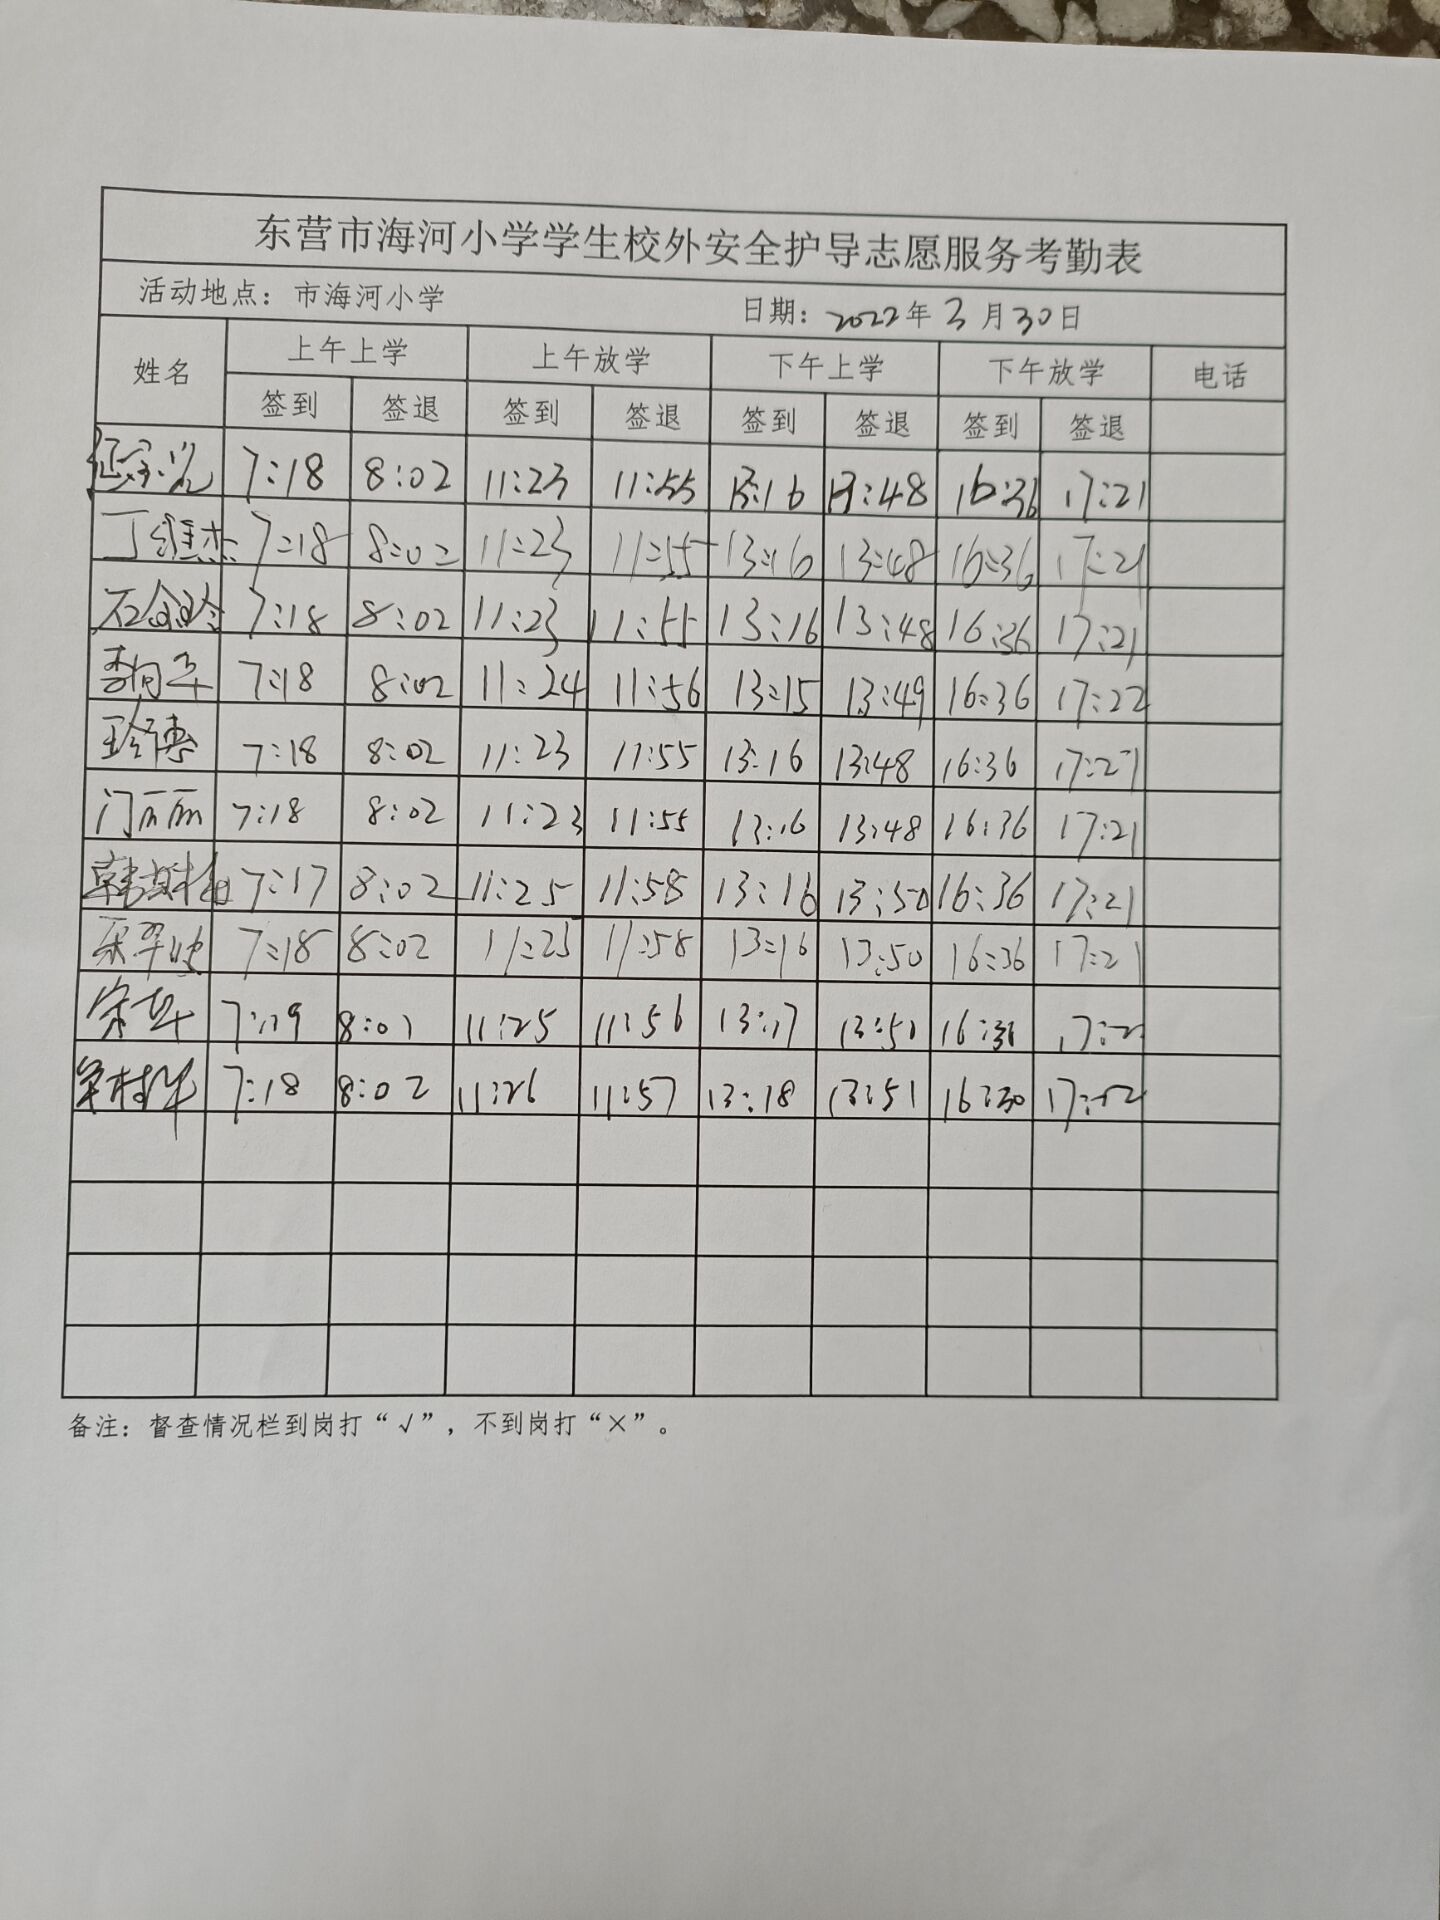 东营市海河小学学生校外安全护导志愿服务考勤表
活动地点：市海河小学 日期：2022年3月30日
姓名 上午上学 上午放学 下午上学 下午放学 电话
签到 签退 签到 签退 签到 签退 签到 签退
7:18 8:02 11:23 11:55 13:16 13:48 16:36 17:21
丁维杰 7:18 8:02 11:23 11:55 13:16 13:48 16:36 17:21
石金玲 7:18 8:02 11:23 11:55 13:16 13:48 16:36 17:21
李向军 7:18 8:02 11:24 11:56 13:15 13:49 16:36 17:22
7:18 8:02 11:23 11:55 13:16 13:48 16:36 17:21
门丽丽 7:18 8:02 11:23 11:55 13:16 13:48 16:36 17:21
7:17 8:02 11:25 11:58 13:16 13:50 16:36 17:21
7:18 8:02 11:25 11:58 13:16 13:50 16:36 17:21
7:19 8:01 11:25 11:56 13:17 13:51 16:31
7:18 8:02 11:26 11:57 13:18 13:51 16:30
备注：督查情况栏到岗打“√”，不到岗打“×”。